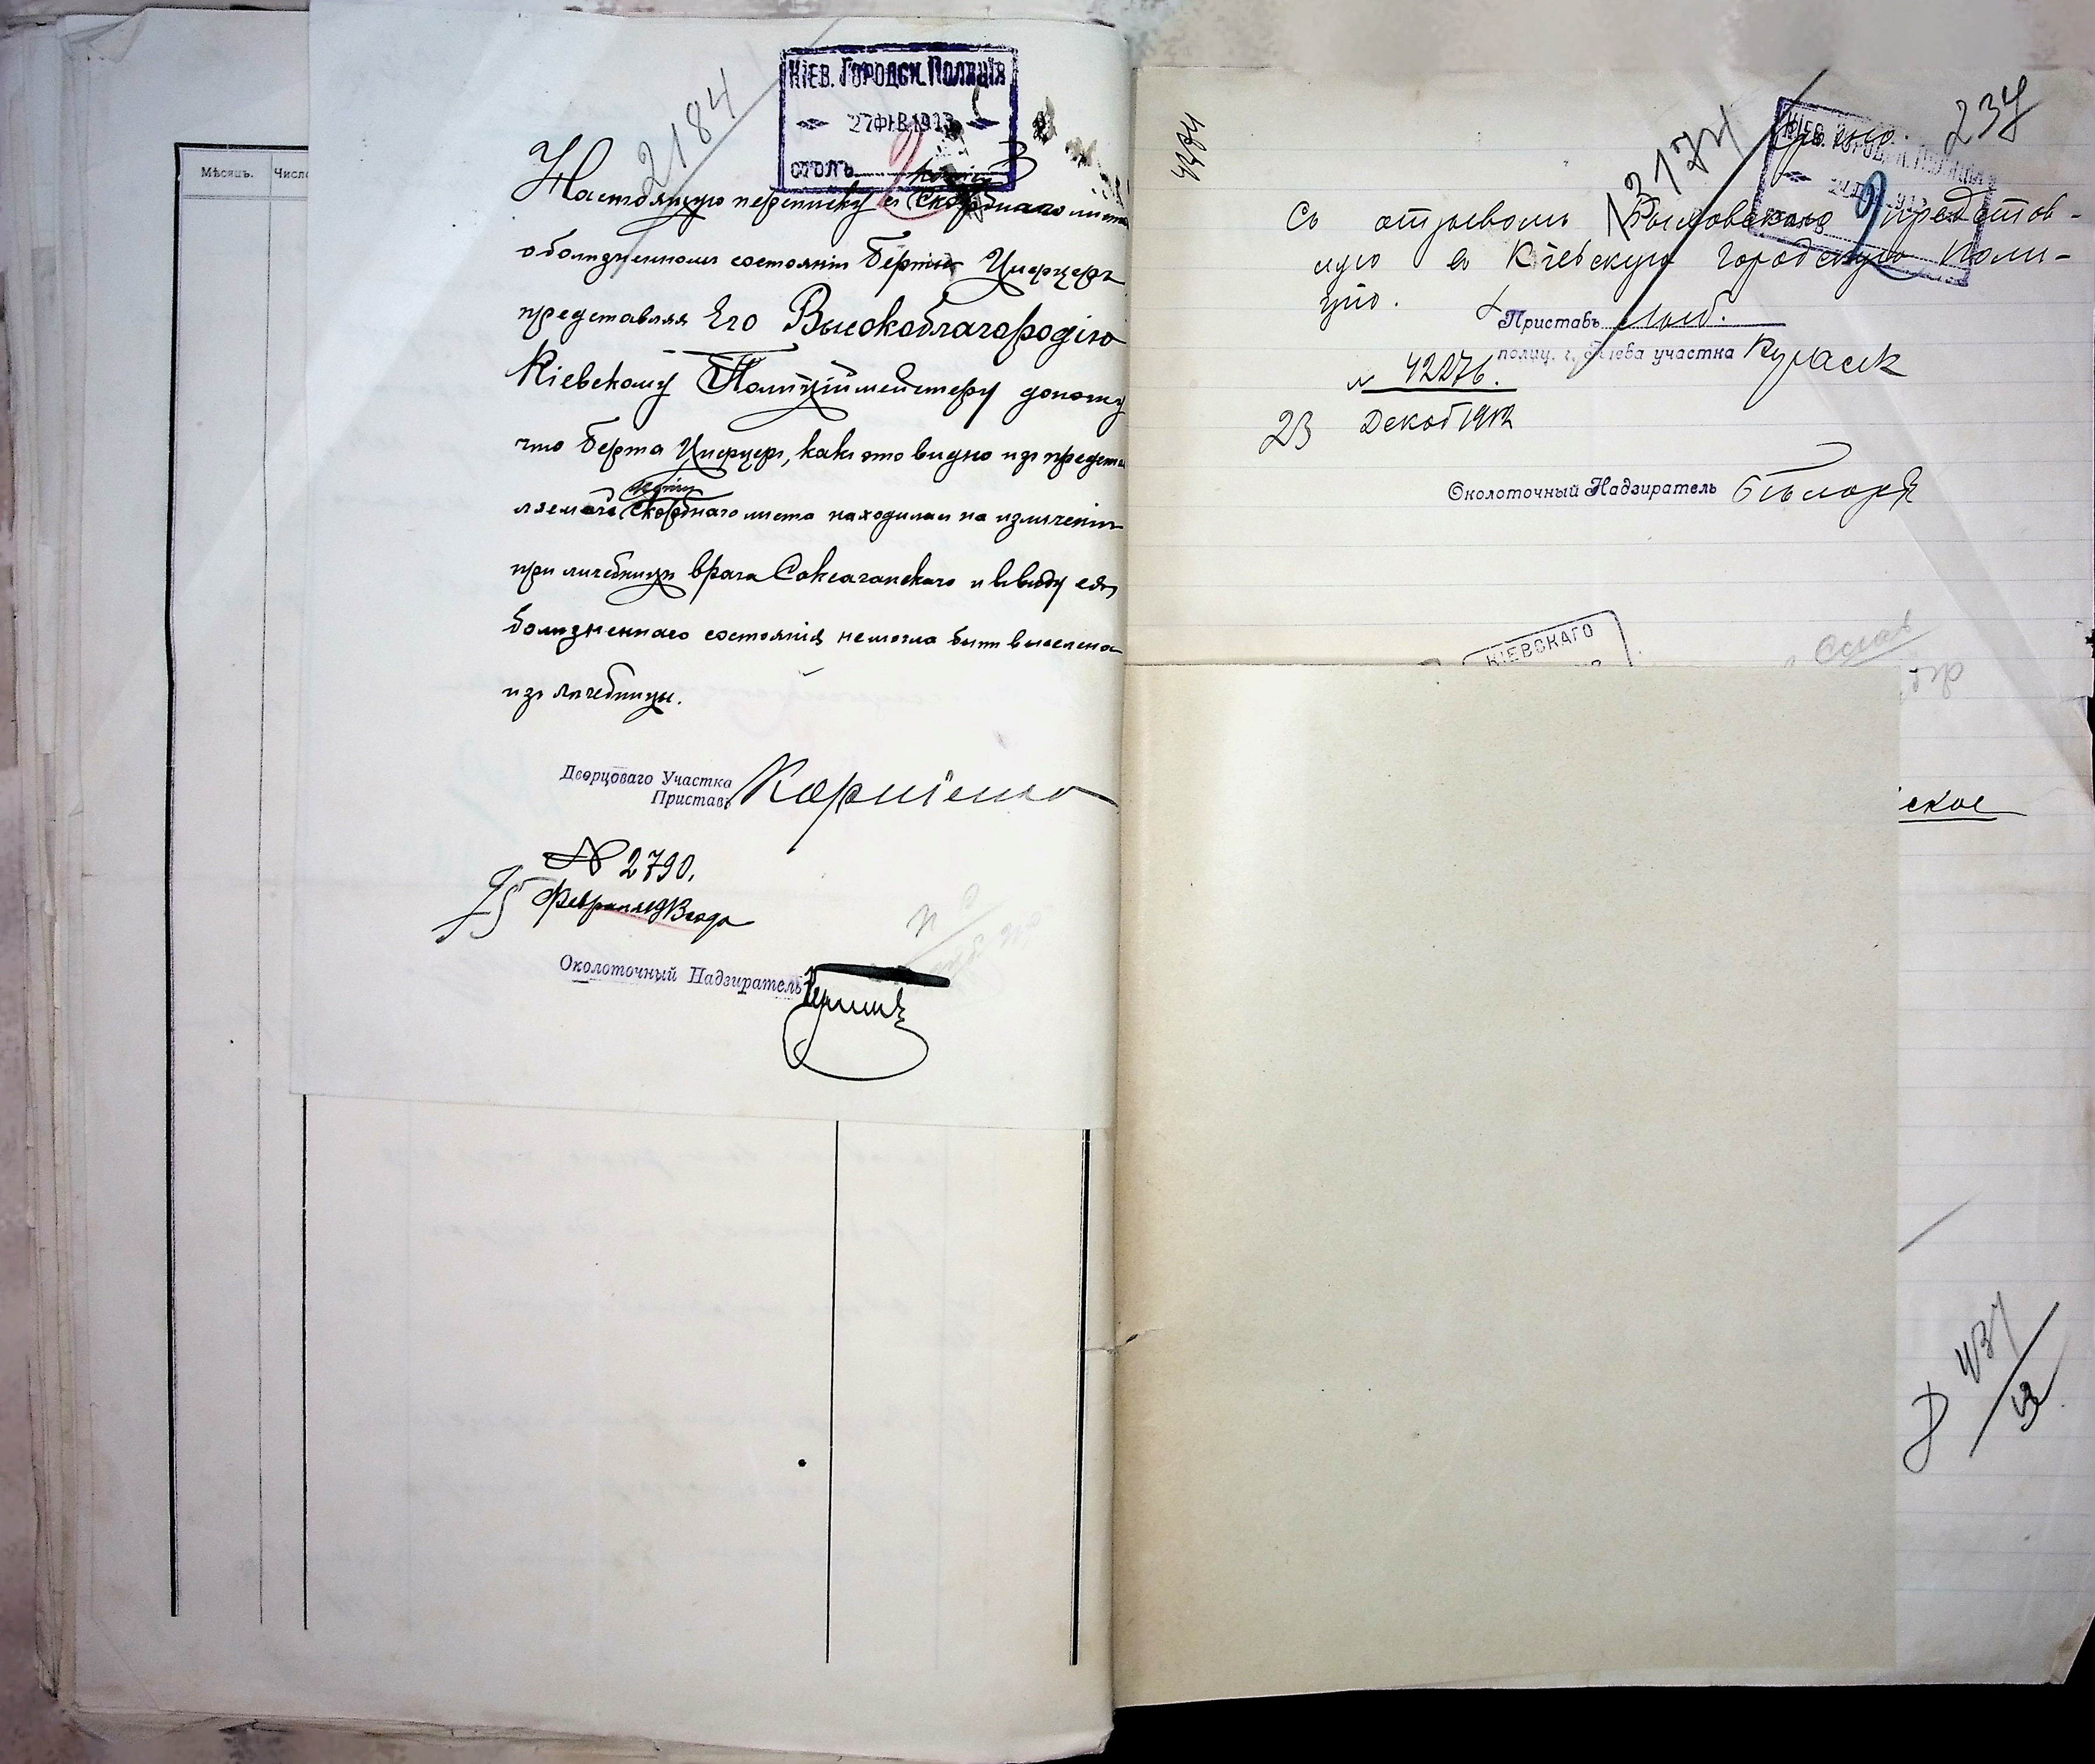 Мѣсяцъ.
Число
2184
КІЕВ. ГОРОДСК. ПОЛИЦІЯ
27 ФЕВ 1913
СТОЛЪ 3
копіи
Настоящую переписку и скорбнаго листа
о болѣзненномъ состояніи Берты Циперцеръ
представляя Его Высокоблагородію
Кіевскому Полиціймейстеру доношу
что Берта Циперцеръ, какъ это видно изъ предста
копіи
вляемаго скорбнаго листа находилась на излѣченіи
при лѣчебницѣ врача Саксаганскаго и ввиду ея
болѣзненнаго состоянія не могла быть выселена
изъ лѣчебницы.
Дворцоваго Участка
Приставъ Корніенко
№ 2790.
25 Февраля 1913 года
Околоточный Надзиратель
237
13174
КІЕВ. ГОРОДСК. ПОЛИЦІЯ
Съ отзывомъ представ-
ляю въ Кіевскую Городскую Поли-
цію.
Приставъ Лыб.
полиц. г. Кіева участка
№ 42276.
23 Декаб 1912
Околоточный Надзиратель
КІЕВСКАГО
ское
437
13